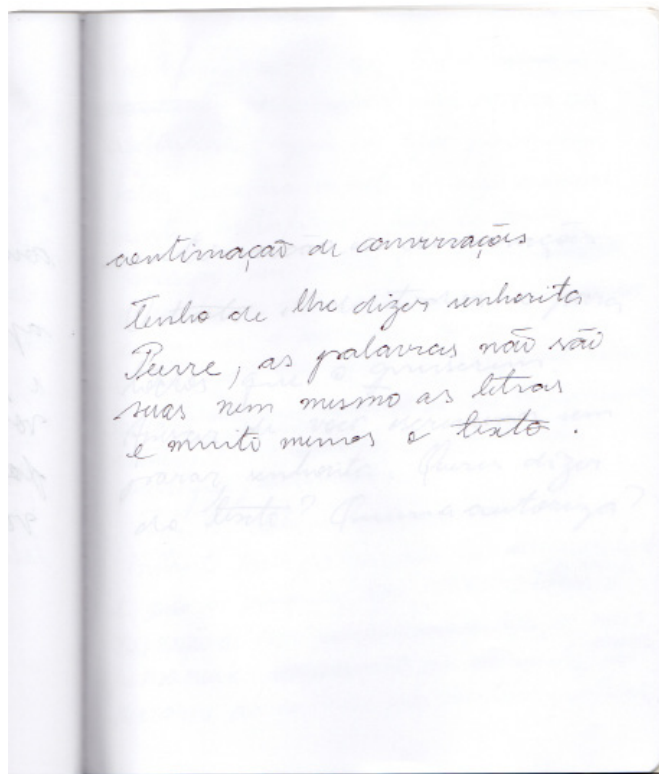 continuação de conversações
Tenho de lhe dizer senhorita
Pierre, as palavras não são
suas nem mesmo as letras
e muito menos o texto.